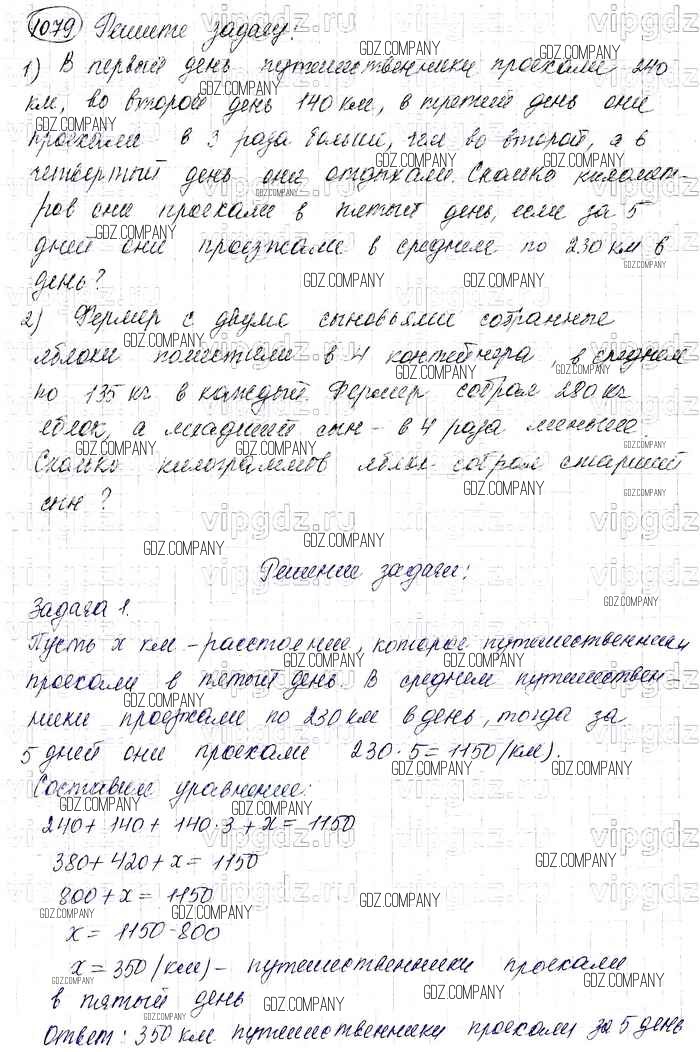 1079 Решите задачу:
1) В первый день путешественники проехали 240
км, во второй день 140 км, в третий день они
проехали в 3 раза больше, чем во второй, а в
четвертый день они отдыхали. Сколько километ-
ров они проехали в пятый день, если за 5
дней они проезжали в среднем по 230 км в
день?
2) Фермер с двумя сыновьями собранные
яблоки поместили в 4 контейнера, в среднем
по 135 кг в каждый. Фермер собрал 280 кг
яблок, а младший сын - в 4 раза меньше.
Сколько килограммов яблок собрал старший
сын?
Решение задачи:
Задача 1.
Пусть x км - расстояние, которое путешественники
проехали в пятый день. В среднем путешествен-
ники проезжали по 230 км в день, тогда за
5 дней они проехали 230·5=1150 (км).
Составим уравнение:
240+140+140·3+x=1150
380+420+x=1150
800+x=1150
x=1150-800
x=350 (км) - путешественники проехали
в пятый день
Ответ: 350 км путешественники проехали за 5 день
GDZ.COMPANY
vipgdz.ru